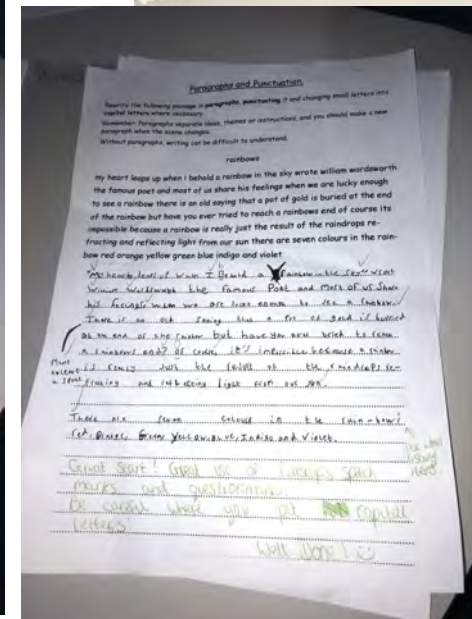 Paragraphs and Punctuation
Rewrite the following passage in paragraphs, punctuating it and changing small letters into
capital letters where necessary.
Remember: Paragraphs separate ideas, themes or instructions, and you should make a new
paragraph when the scene changes.
Without paragraphs, writing can be difficult to understand.
rainbows
my heart leaps up when i behold a rainbow in the sky wrote william wordsworth
the famous poet and most of us share his feelings when we are lucky enough
to see a rainbow there is an old saying that a pot of gold is buried at the end
of the rainbow but have you ever tried to reach a rainbows end of course its
impossible because a rainbow is really just the result of the raindrops re-
fracting and reflecting light from our sun there are seven colours in the rain-
bow red orange yellow green blue indigo and violet
the famous Poet and Most of us Share
his feelings when we are enough to see a rainbow.
There is an old saying that a Pot of gold is burried
at an end of the rainbow but have you ever tried to
a rainbows end? Of course, it's impossible because a rainbow
is really just the result of the raindrops re-
and reflecting light from our sun.
There are seven colours in the rain-bow
red, Green, Yellow, Indigo and Violet.
Great Start! Great use of speech
marks and
Be careful where you put capital
letters.
Well done!